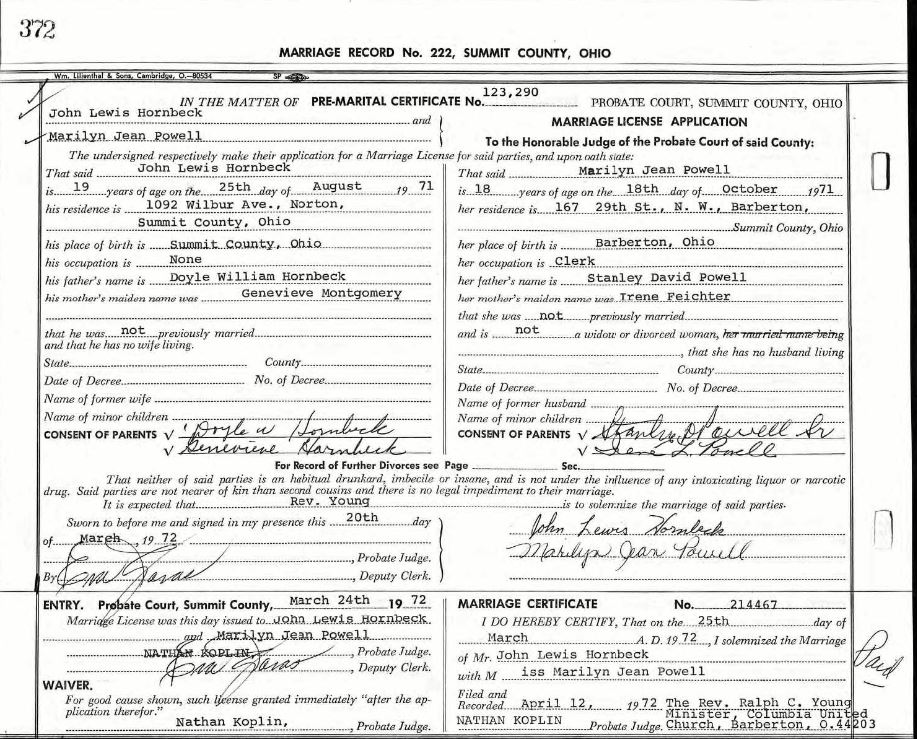 372
MARRIAGE RECORD No. 222, SUMMIT COUNTY, OHIO
Wm. Lilienthal & Sons, Cambridge, O.—80534 SP
IN THE MATTER OF PRE-MARITAL CERTIFICATE No. 123,290 PROBATE COURT, SUMMIT COUNTY, OHIO
John Lewis Hornbeck and
Marilyn Jean Powell
MARRIAGE LICENSE APPLICATION
To the Honorable Judge of the Probate Court of said County:
The undersigned respectively make their application for a Marriage License for said parties, and upon oath state:
That said John Lewis Hornbeck
is 19 years of age on the 25th day of August 19 71
his residence is 1092 Wilbur Ave., Norton,
Summit County, Ohio
his place of birth is Summit County, Ohio
his occupation is None
his father's name is Doyle William Hornbeck
his mother's maiden name was Genevieve Montgomery
that he was not previously married
and that he has no wife living.
State County
Date of Decree No. of Decree
Name of former wife
Name of minor children
CONSENT OF PARENTS √ Doyle W Hornbeck
√ Genevieve Hornbeck
That said Marilyn Jean Powell
is 18 years of age on the 18th day of October 1971
her residence is 167 29th St., N. W., Barberton,
Summit County, Ohio
her place of birth is Barberton, Ohio
her occupation is Clerk
her father's name is Stanley David Powell
her mother's maiden name was Irene Feichter
that she was not previously married
and is not a widow or divorced woman, her married name being
, that she has no husband living
State County
Date of Decree No. of Decree
Name of former husband
Name of minor children
CONSENT OF PARENTS √ Stanley D Powell Sr
√ Irene L. Powell
For Record of Further Divorces see Page Sec.
That neither of said parties is an habitual drunkard, imbecile or insane, and is not under the influence of any intoxicating liquor or narcotic
drug. Said parties are not nearer of kin than second cousins and there is no legal impediment to their marriage.
It is expected that Rev. Young is to solemnize the marriage of said parties.
Sworn to before me and signed in my presence this 20th day
of March, 19 72
, Probate Judge.
By , Deputy Clerk.
John Lewis Hornbeck
Marilyn Jean Powell
ENTRY. Probate Court, Summit County, March 24th 19 72
Marriage License was this day issued to John Lewis Hornbeck
and Marilyn Jean Powell
NATHAN KOPLIN, Probate Judge.
, Deputy Clerk.
WAIVER.
For good cause shown, such license granted immediately "after the ap-
plication therefor."
Nathan Koplin, , Probate Judge.
MARRIAGE CERTIFICATE No. 214467
I DO HEREBY CERTIFY, That on the 25th day of
March A. D. 1972, I solemnized the Marriage
of Mr. John Lewis Hornbeck
with M iss Marilyn Jean Powell
Filed and
Recorded April 12, 1972 The Rev. Ralph C. Young
Minister, Columbia United
NATHAN KOPLIN Probate Judge. Church, Barberton, O.44203
Paid